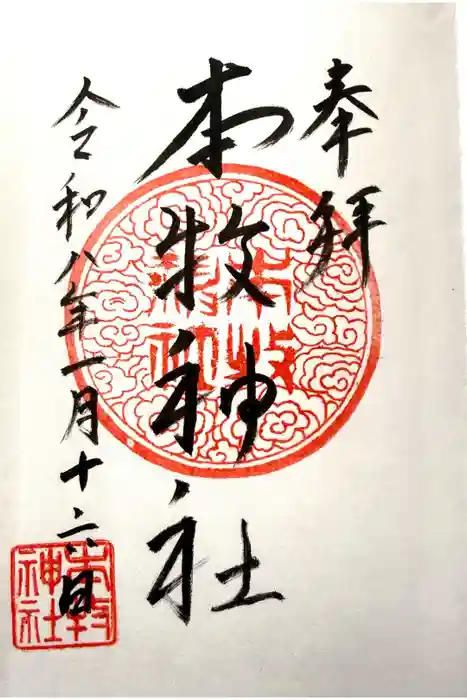 奉拝
本牧神社
令和八年一月十六日
本牧神社
本牧神社